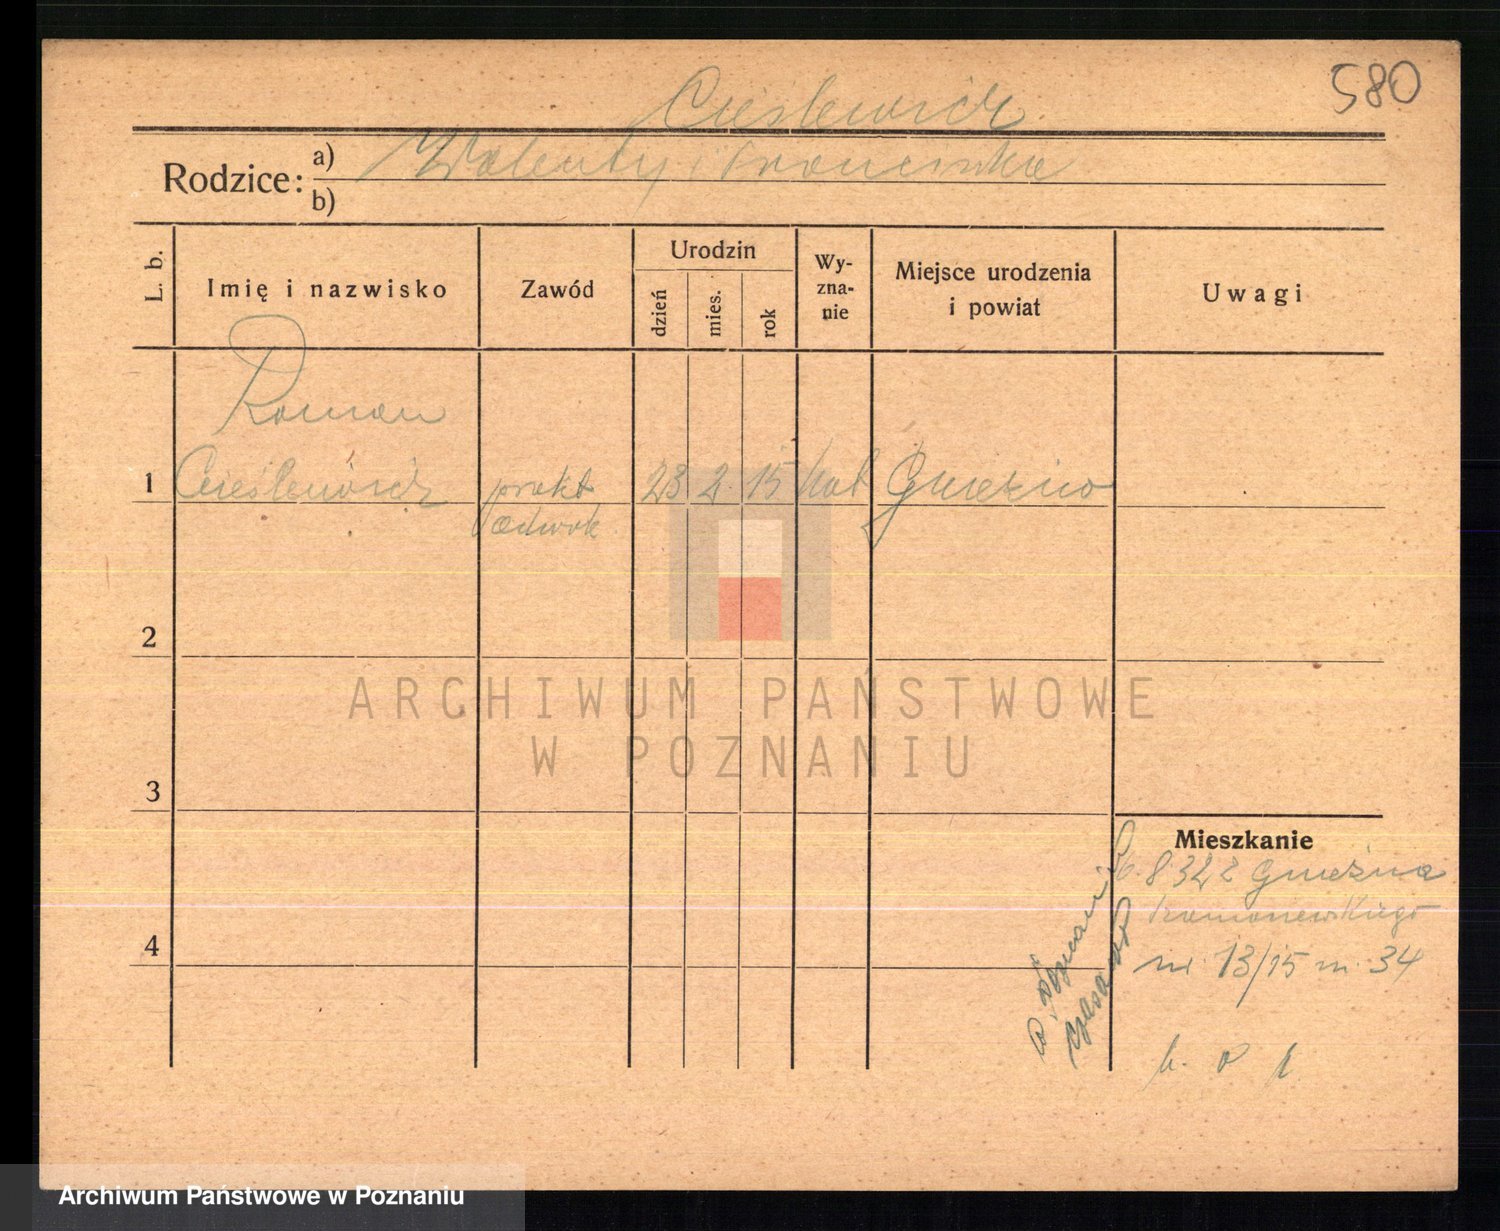 580
Cieślewicz
Rodzice: a) Walenty i Franciszka
b)
L. b.
Imię i nazwisko
Zawód
Urodzin
dzień
mies.
rok
Wy-
zna-
nie
Miejsce urodzenia
i powiat
Uwagi
Roman
1 Cieślewicz prakt 23 2 15 kat Gniezno
adwok.
2
3
4
ARCHIWUM PAŃSTWOWE
W POZNANIU
Mieszkanie
8.32 z Gniezna
nr. 13/15 m. 34
Archiwum Państwowe w Poznaniu